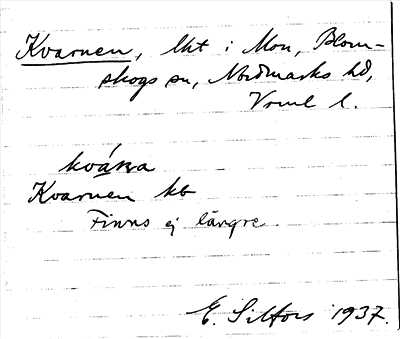 Kvarnen, lht i Mon, Blom-
skogs sn, Nordmarks hd,
Vrml l.
Kvarnen kb
Finns ej längre.
E. 1937.